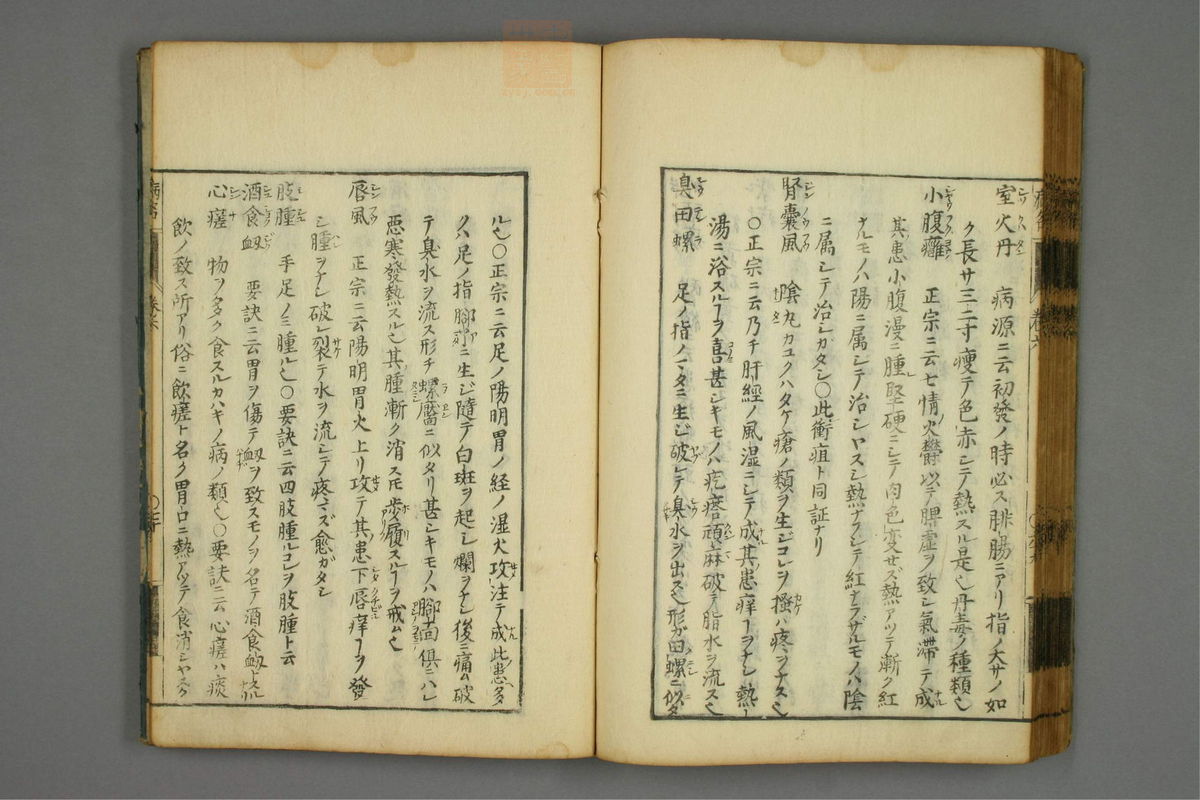 室火丹　病源ニ云初發ノ時必ス腓腸ニアリ指ノ大サノ如
ク長サ三二寸痩テ色赤シテ熱スル是也丹毒ノ種類也
小腹癰　正宗ニ云七情ノ火欝以テ脾虚ヲ致シ氣滞テ成
其患小腹漫ニ腫堅硬ニシテ肉色変ゼズ熱アツテ漸ク紅
ナルモノハ陽ニ属シテ治シヤスシ熱ナクシテ紅ナラザルモノハ陰
ニ属シテ治シガタシ○此衝疽ト同証ナリ
腎囊風　陰丸カユクハタケ瘡ノ類ヲ生ジコレヲ搔ハ疼ヲナス也
○正宗ニ云乃チ肝經ノ風湿ニシテ成其患痒ヿヲナシ熱
湯ニ浴スルヿヲ喜甚シキモノハ疙瘩頑麻破テ脂水ヲ流ス也
臭田螺　足ノ指ノマタニ生ジ破レテ臭水ヲ出ス也形ガ田螺ニ似タ
ル也○正宗ニ云足ノ陽明胃ノ経ノ湿火攻注テ成此患多
ク八足ノ指脚ニ生ジ隨テ白斑ヲ起シ爛ヲナシ後ニ痛ム破
テ臭水ヲ流ス形チ螺靨ニ似タリ甚シキモノハ脚面俱ニハレ
悪寒發熱スル也其腫漸ク消スㇳモ歩履スルヿヲ戒ム也
唇風　正宗ニ云陽明胃火上リ攻テ其患下唇痒ヿヲ發
シ腫ヲナシ破レ裂テ水ヲ流シテ疼マズ愈ガタシ
肢腫　手足ノミ腫ル也○要訣ニ云四肢腫ルコレヲ肢腫ト云
酒食衂　要訣ニ云胃ヲ傷テ衂ヲ致スモノヲ名テ酒食衂トスル
心瘥　物ヲ多ク食スルカハキノ病ノ類也○要訣ニ云心瘥ハ痰
飲ノ致ス所アリ俗ニ飲瘥ト名ク胃口ニ熱アツテ食消シヤスク